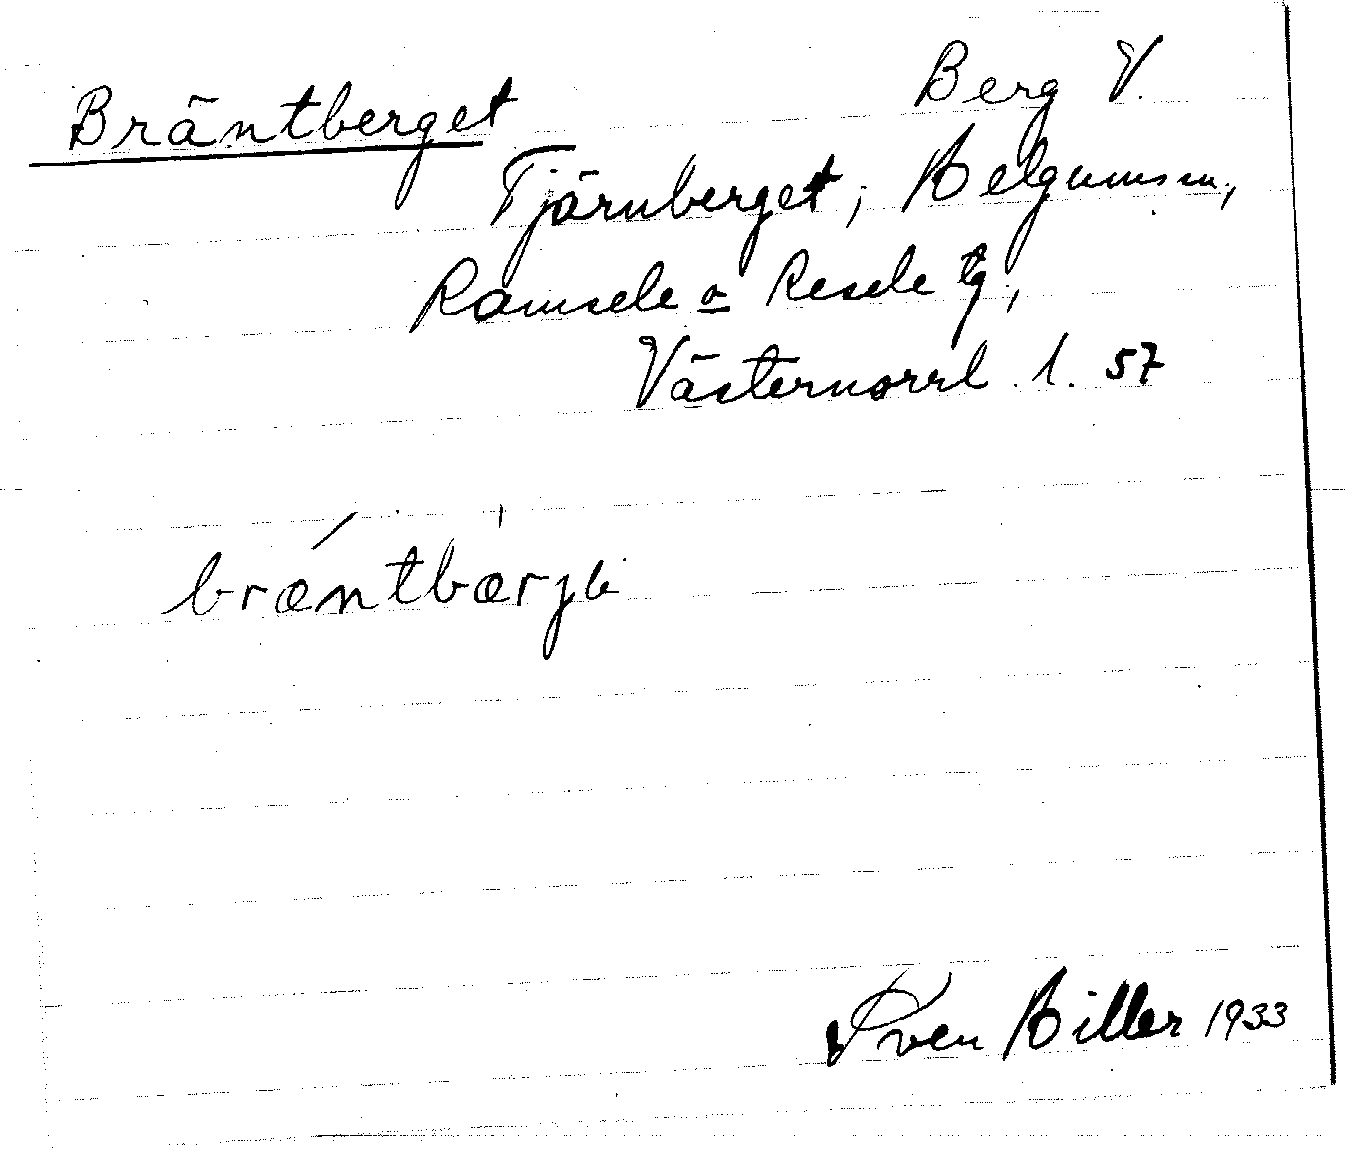 Bräntberget
Berg V.
Tjärnberget, Helgumssn,
Ramsele o Resele tg,
Västernorrl. l. 57
bræntbærjɩ
Sven Hiller 1933